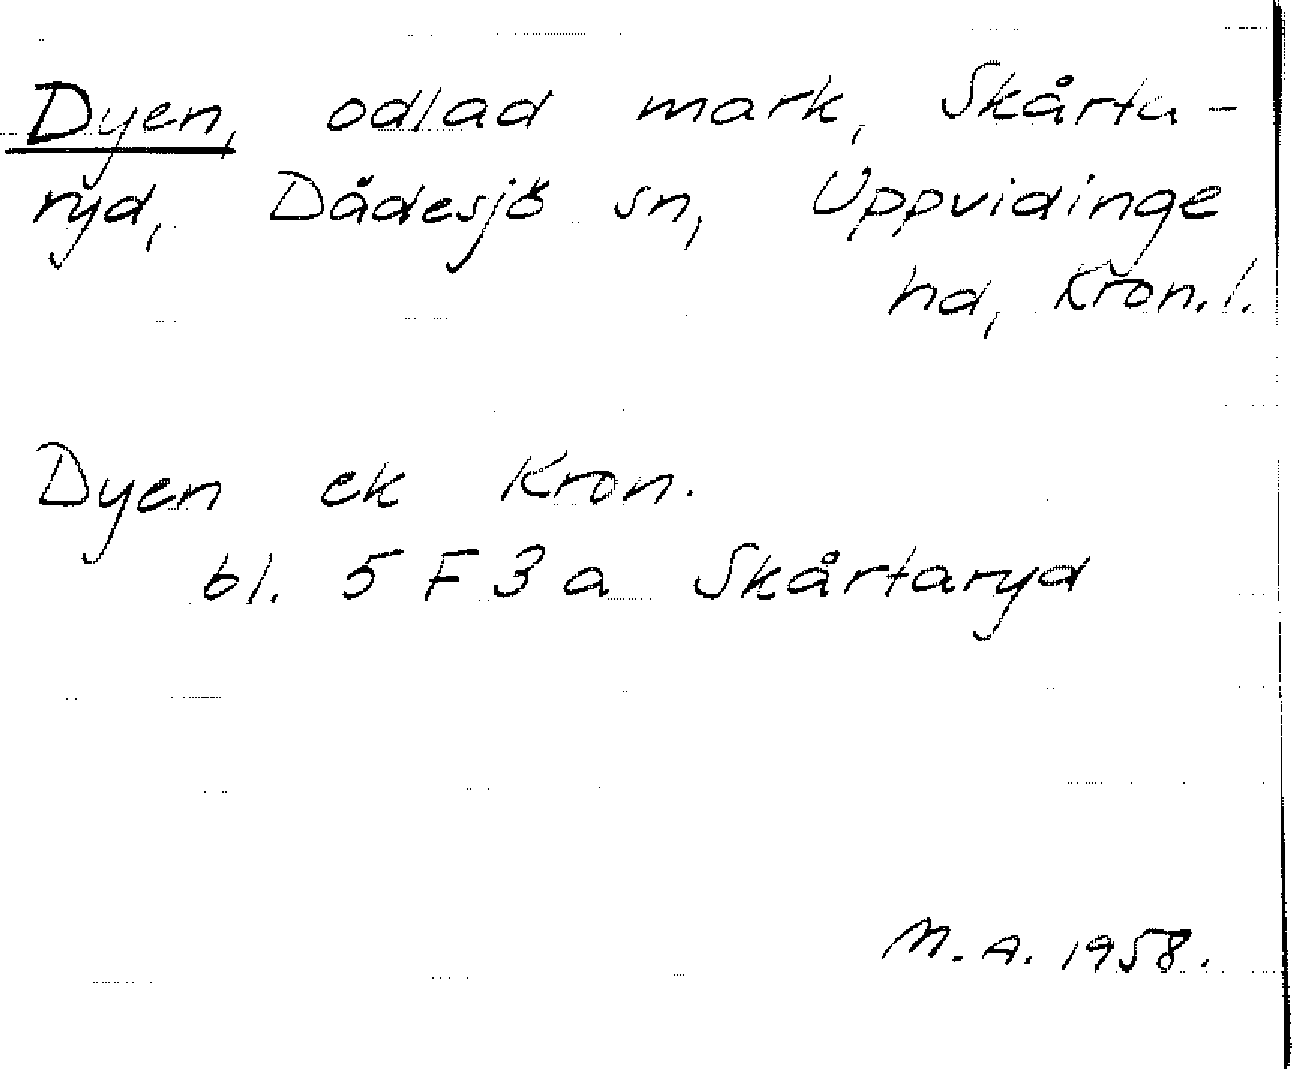 Dyen, odlad mark, Skårta-
ryd, Dädesjö sn, Uppvidinge
hd, Kron.l.
Dyen ek Kron.
bl. 5 F 3 a Skårtaryd
M.A. 1958.